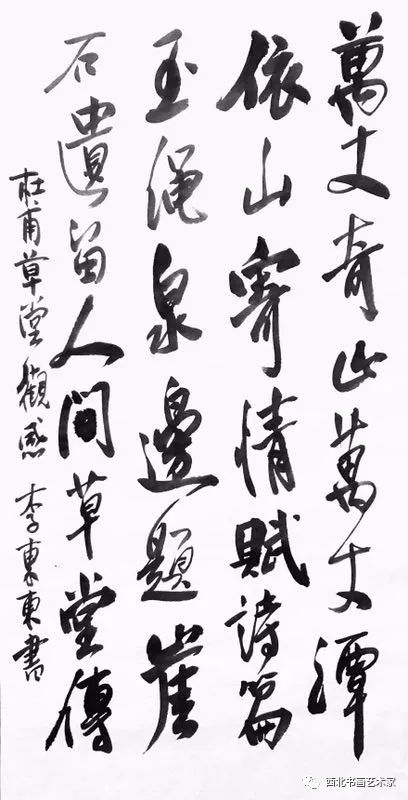 萬丈奇山萬丈潭
依山寄情賦詩篇
玉绳泉邊題崖
石遺留人间草堂傳
杜甫草堂觀感 李東東書
西北书画艺术家